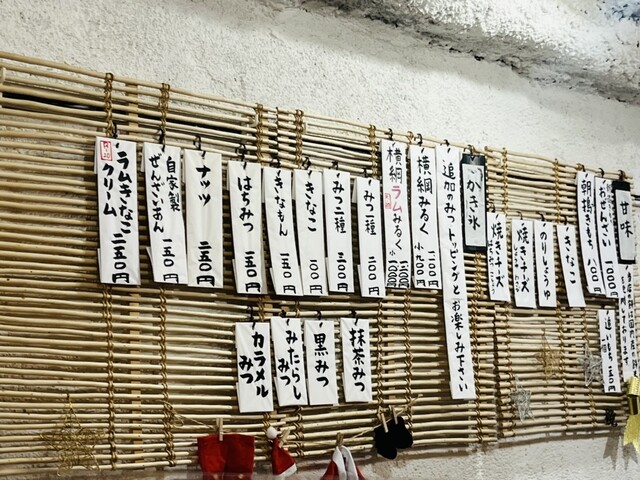 甘味
おぜんざい
朝搗きもち 八〇〇円
追いもち 一五〇円
きなこ
のりしょうゆ
焼きチーズ
焼きチーズ
かき氷
追加のみつ トッピングと お楽しみ下さい
横綱みるく
小 九〇〇円
横綱ラムみるく
みつ一種 二〇〇円
みつ二種 三〇〇円
きなこ 一〇〇円
きなもん 一五〇円
はちみつ 一五〇円
ナッツ 二五〇円
自家製
ぜんざいあん 一五〇円
ラムきなこ
クリーム 二五〇円
抹茶みつ
黒みつ
みたらし
みつ
カラメル
みつ